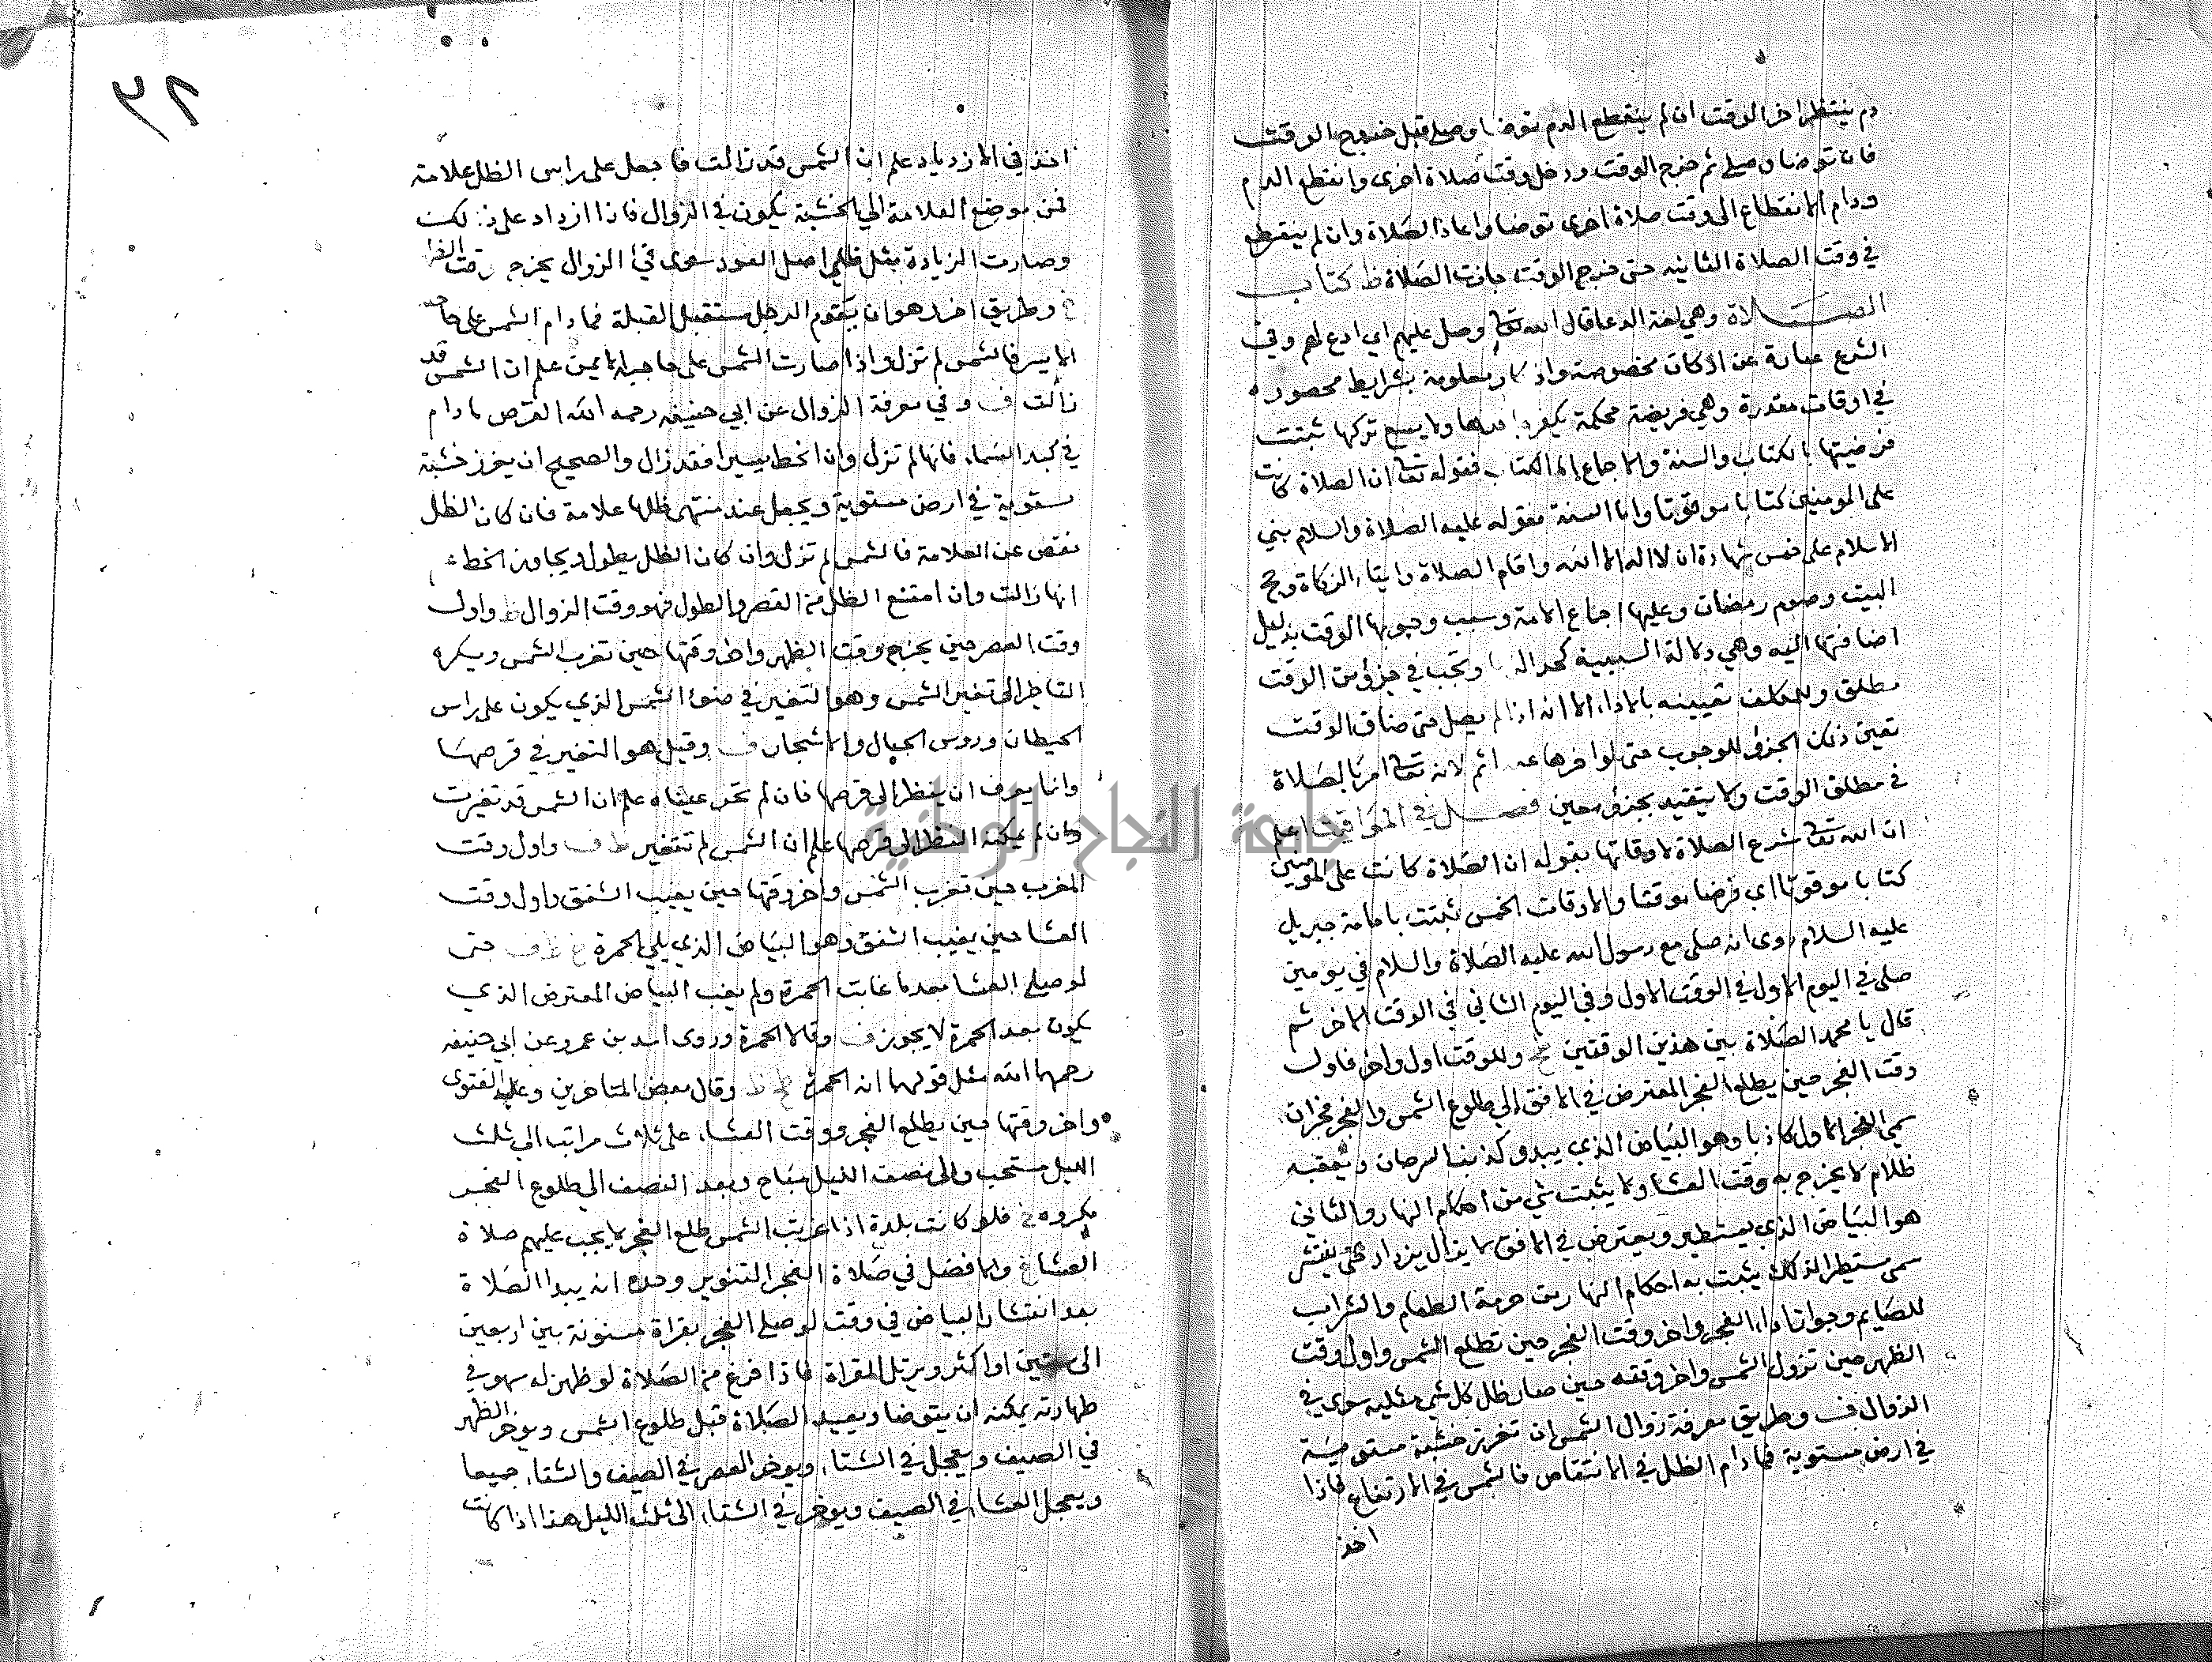 دم ينتظر اخر الوقت ان لم ينقطع الدم توضا وصلى قبل خروج الوقت
فان توضا وصلى ثم خرج الوقت ودخل وقت صلاة اخرى وانقطع الدم
ودام الانقطاع الى وقت صلاة اخرى توضا واعاد الصلاة وان لم ينقطع
في وقت الصلاة الثانيه حتى خرج الوقت جازت الصلاة ظ كتاب
الصلاة وهي لغة الدعا قال الله تعا وصل عليهم اي ادع لهم وفي
الشرع عبارة عن اركان مخصوصة واذكار معلومة بشرايط محصوره
في اوقات مقدرة وهي فريضة محكمة يكفر جاحدها ولا يسع تركها ثبتت
فرضيتها بالكتاب والسنة والاجماع اما الكتاب فقوله تعا ان الصلاة كانت
على المومنين كتابا موقوتا واما السنة فقوله عليه الصلاة والسلام بني
الاسلام على خمس شهادة ان لا اله الا الله واقام الصلاة وايتاء الزكاة وحج
البيت وصوم رمضان وعليها اجماع الامة وسبب وجوبها الوقت بدليل
اضافتها اليه وهي دلالة السببية كحد الزنا وتجب في جزؤ من الوقت
مطلق وللمكلف تعيينه بالاداء الا انه اذا لم يصل حتى ضاق الوقت
تعين ذلك الجزؤ للوجوب حتى لو اخرها عنه اثم لانه تعا امر بالصلاة
في مطلق الوقت ولا يتقيد بجزؤ معين فصل في المواقيت اعلم
ان الله تعا شرع الصلاة لاوقاتها بقوله ان الصلاة كانت على المومنين
كتابا موقوتا اي فرضا موقتا والاوقات الخمس ثبتت بامامة جبريل
عليه السلام روى انه صلى مع رسول الله عليه الصلاة والسلام في يومين
صلى في اليوم الاول في الوقت الاول وفي اليوم الثاني في الوقت الاخر ثم
قال يا محمد الصلاة بين هذين الوقتين وللوقت اول واخر فاول
وقت الفجر حين يطلع الفجر المعترض في الافق الى طلوع الشمس والفجر فجران
سمي الفجر الاول كاذبا وهو البياض الذي يبدو كذنب السرحان ويعقبه
ظلام لا يخرج به وقت العشا ولا يثبت شي من احكام النهار والثاني
هو البياض الذي يستطير ويعترض في الافق لا يزال يزداد حتى ينتشر
سمي مستطيرا لذلك يثبت به احكام النهار من حرمة الطعام والشراب
للصايم وجواز اداء الفجر واخر وقت الفجر حين تطلع الشمس واول وقت
الظهر حين تزول الشمس واخر وقته حين صار ظل كل شي مثليه سوى في
الزوال ف وطريق معرفة زوال الشمس ان تغرز خشبة مستوية
في ارض مستوية فما دام الظل في الانتقاص فالشمس في الارتفاع فاذا
اخذ
٣٢
اخذ في الازدياد علم ان الشمس قد زالت فاجعل على راس الظل علامة
فمن موضع العلامة الى الخشبة يكون في الزوال فاذا ازداد على ذلك
وصارت الزيادة مثل ظلي اصل العود سوى في الزوال يخرج وقت الظهر
وطريق اخر هو ان يقوم الرجل مستقبل القبلة فما دام الشمس على حاجبه
الايسر فالشمس لم تزل واذا صارت الشمس على حاجبه الايمن علم ان الشمس قد
زالت ف وفي معرفة الزوال عن ابي حنيفه رحمه الله القرص ما دام
في كبد السماء فانها لم تزل وان انحط يسيرا فقد زال والصحيح ان يغرز خشبة
مستوية في ارض مستوية ويجعل عند منتهى ظلها علامة فان كان الظل
ينقص عن العلامة فالشمس لم تزل وان كان الظل يطول ويجاوز الخط علم
انها زالت وان امتنع الظل من القصر والطول فهو وقت الزوال ظ واول
وقت العصر حين يخرج وقت الظهر واخر وقتها حين تغرب الشمس ويكره
التاخير الى تغير الشمس وهو التغير في ضوء الشمس الذي يكون على راس
الحيطان وروس الجبال والاشجار ف وقيل هو التغير في قرصها
وانما يعرف ان ينظر الى قرصها فان لم تحر عيناه علم ان الشمس قد تغيرت
وان لم يمكنه النظر الى قرصها علم ان الشمس لم تتغير ظ ف واول وقت
المغرب حين تغرب الشمس واخر وقتها حين يغيب الشفق واول وقت
العشا حين يغيب الشفق وهو البياض الذي يلي الحمرة حتى
لو صلى العشا بعدما غابت الحمرة ولم يغب البياض المعترض الذي
يكون بعد الحمرة لا يجوز ف وقالا الحمرة وروى اسد بن عمرو عن ابي حنيفه
رحمهما الله مثل قولهما انه الحمرة وقال بعض المتاخرين وعليه الفتوى
واخر وقتها حين يطلع الفجر ووقت العشاء على ثلاث مراتب الى ثلث
الليل مستحب والى نصف الليل مباح وبعد النصف الى طلوع الفجر
مكروه فلو كانت بلدة اذا غربت الشمس طلع الفجر لا يجب عليهم صلاة
العشا والافضل في صلاة الفجر التنوير وحده انه يبدا الصلاة
بعد انتشار البياض في وقت لو صلى الفجر بقراة مسنونة بين اربعين
الى ستين او اكثر ويرتل القراة فاذا فرغ من الصلاة لو ظهر له سهو في
طهارته يمكنه ان يتوضا ويعيد الصلاة قبل طلوع الشمس ويوخر الظهر
في الصيف ويعجل في الشتاء ويوخر العصر في الصيف والشتاء جميعا
ويعجل العشاء في الصيف ويوخر في الشتاء الى ثلث الليل هذا اذا كانت
جامعة النجاح الوطنية